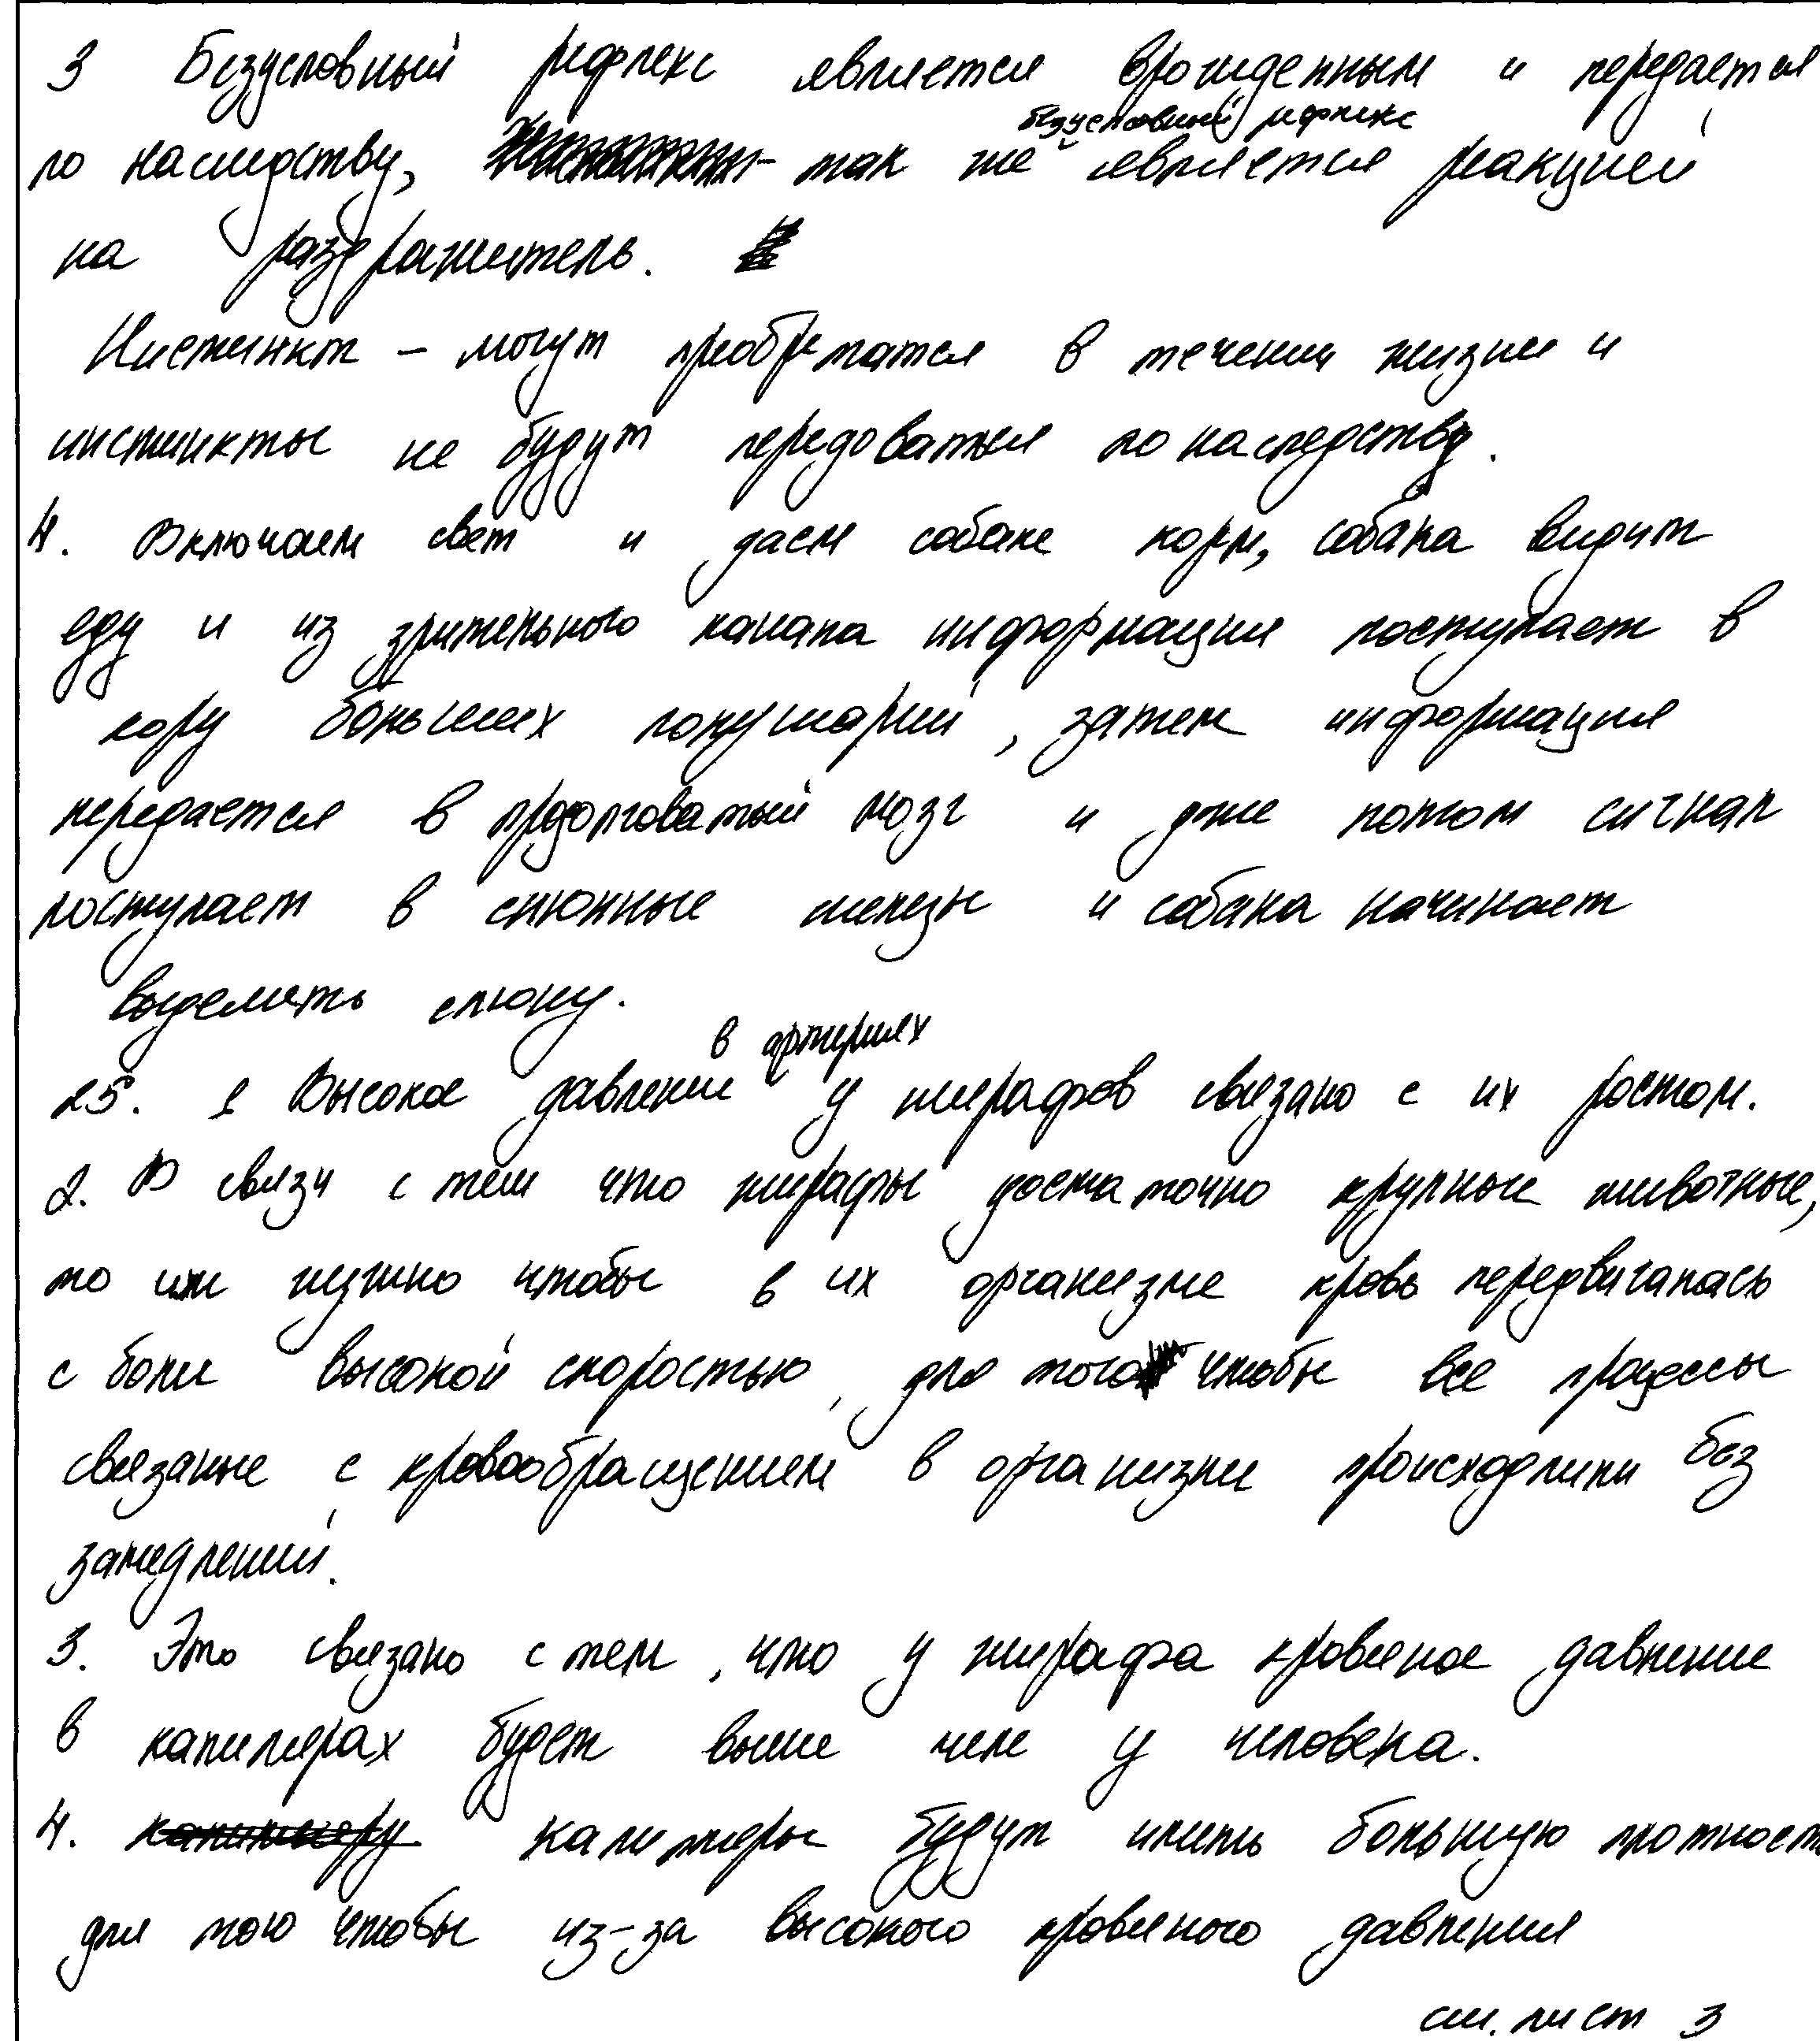 3 Безусловный рефлекс является врожденным и передается
по наследству, так же безусловный рефлекс является реакцией
на раздражитель.
Инстинкт – могут приобретатся в течении жизни и
инстинкты не будут передоваться по наследству.
4. Включаем свет и даем собаке корм, собака видит
еду и из зрительного канала информация поступает в
кору больших полушарий, затем информация
передается в продолговатый мозг и уже потом сигнал
поступает в слюнные железы и собака начинает
выделять слюну.
25. 1 Высокое давление в артериях у жирафов связано с их ростом.
2. В связи с тем что жирафы достаточно крупные животные,
то им нужно чтобы в их организме кровь передвигалась
с боле высокой скоростью, для того чтобы все процессы
связаные с кровообращением в организме происходили без
замедлений.
3. Это связано с тем, что у жирафа кровяное давление
в капилярах будет выше чем у человека.
4. капиляры будут иметь большую плотность
для того чтобы из-за высокого кровяного давления
см. лист 3